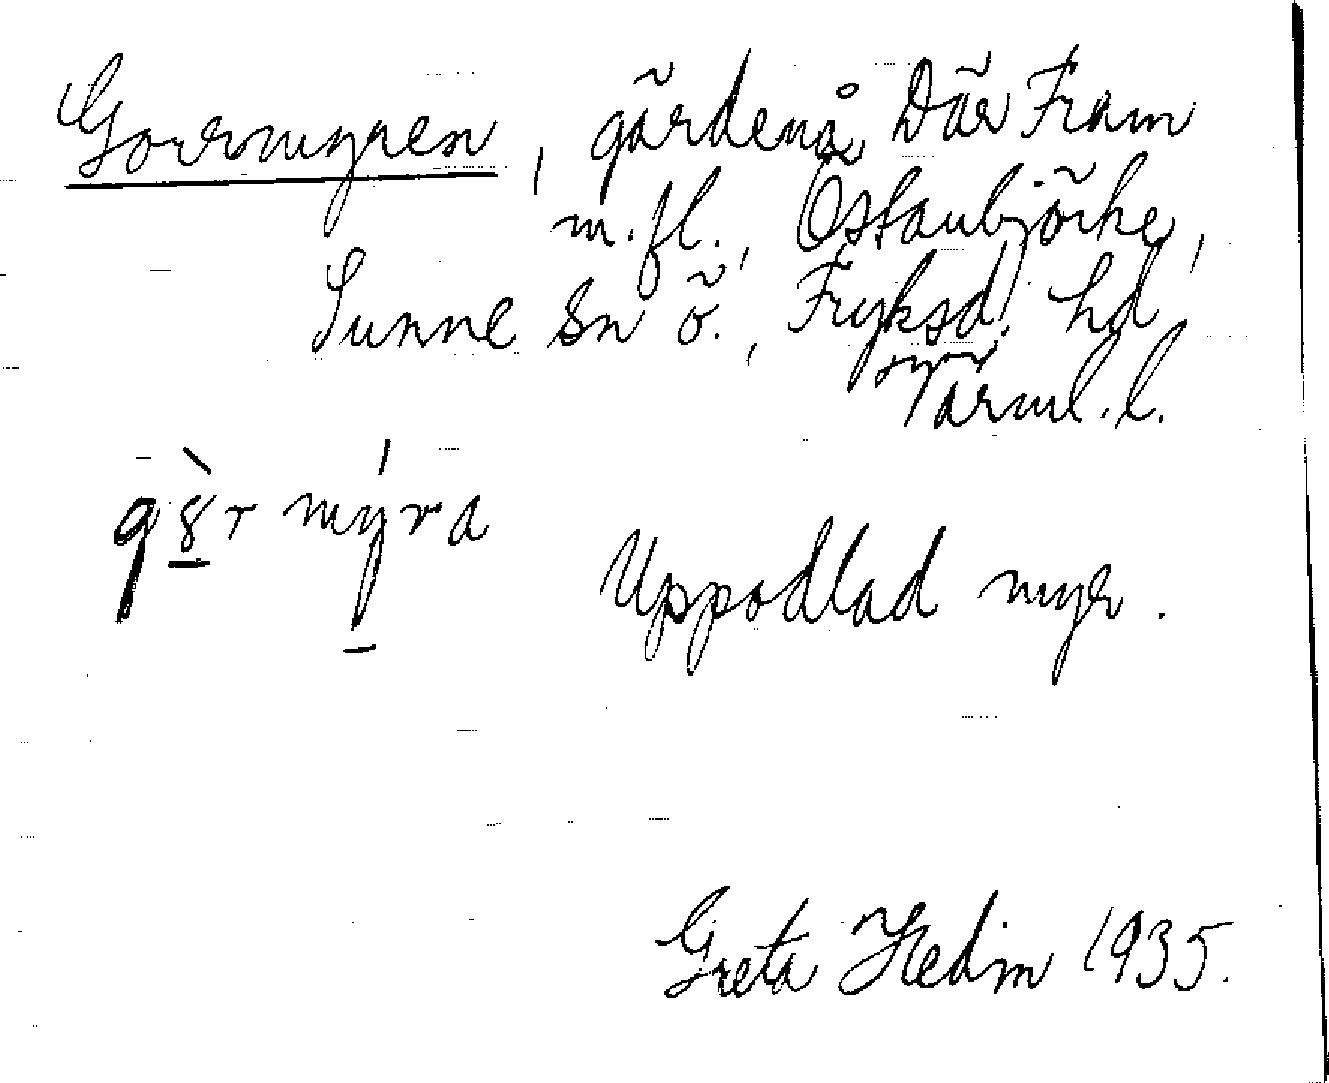 Gorrmyren, gärdena Där Fram
m.fl., Östanbjörke,
Sunne sn ö., Fryksd. hd
Värml. l.
Uppodlad myr.
Greta Hedin 1935.